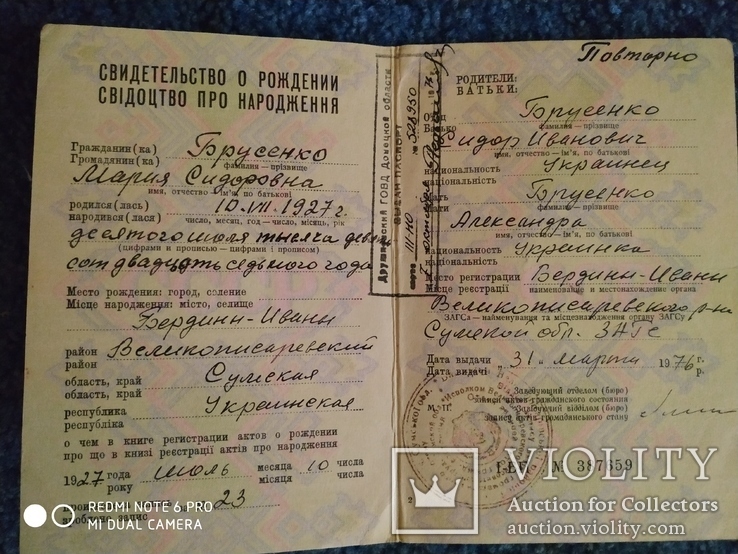 СВИДЕТЕЛЬСТВО О РОЖДЕНИИ
СВІДОЦТВО ПРО НАРОДЖЕННЯ
Гражданин(ка) Брусенко
Громадянин(ка) фамилия — прізвище
Мария Сидоровна
имя, отчество — ім'я, по батькові
родился(лась) 10.VII.1927 г.
народився(лася) число, месяц, год — число, місяць, рік
десятого июля тысяча девять
(цифрами и прописью — цифрами і прописом)
сот двадцать седьмого года
Место рождения: город, селение
Місце народження: місто, селище
Бердинн-Иваны
район Великописаревский
район
область, край Сумская
область, край
республика Украинская
республіка
о чем в книге регистрации актов о рождении
про що в книзі реєстрації актів про народження
1927 года июль месяца 10 числа
року місяця числа
23
зроблено запис
REDMI NOTE 6 PRO
MI DUAL CAMERA
Дружковский ГОВД Донецкой области
ВЫДАН ПАСПОРТ
серия III-НО № 528950
Повторно
РОДИТЕЛИ:
БАТЬКИ:
Отец Брусенко
Батько фамилия — прізвище
Сидор Иванович
имя, отчество — ім'я, по батькові
национальность Украинец
національність
Мать Брусенко
Мати фамилия — прізвище
Александра
имя, отчество — ім'я, по батькові
национальность Украинка
національність
Место регистрации Бердинн-Иваны
Місце реєстрації наименование и местонахождение органа
Великописаревского р-на
ЗАГСа — найменування та місцезнаходження органу ЗАГСу
Сумской обл. ЗАГС
Дата выдачи 31 марта 1976 г.
Дата видачі р.
Заведующий отделом (бюро)
записи актов гражданского состояния
М. П. Завідуючий відділом (бюро)
запису актів громадянського стану
№ 387659
12
VIOLITY
Auction for Collectors
auction.violity.com